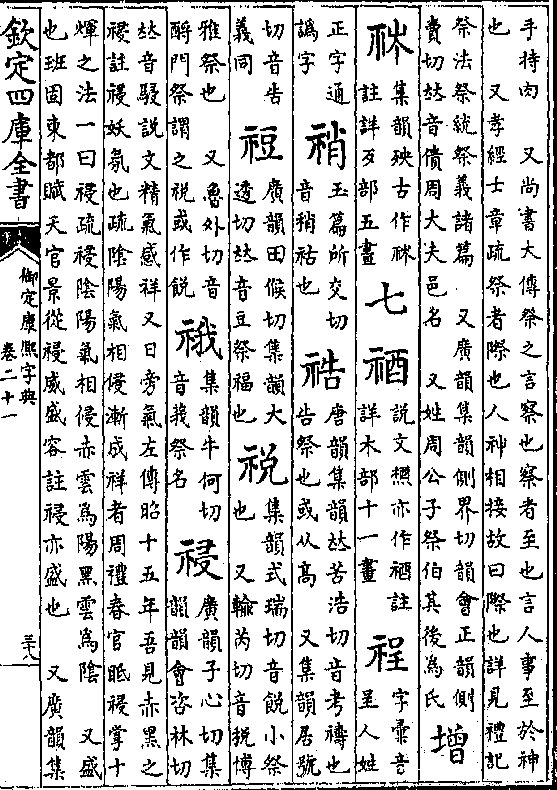 手持肉　又尚書大傳祭之言察也察者至也言人事至於神
也　又孝經士章疏祭者際也人神相接故曰際也詳見禮記
祭法祭統祭義諸篇　又廣韻集韻側界切韻會正韻側
賣切𠀤音債周大夫邑名　又姓周公子祭伯其後爲氏　增
集韻殃古作
註詳歹部五畫
七
禉
說文槱亦作禉註
詳木部十一畫
程
字彙音
呈人姓
正字通
譌字
䄻
玉篇所交切
音稍祜也
祰
唐韻集韻𠀤苦浩切音考禱也
告祭也或从高　又集韻居號
切音告
義同
䄈
廣韻田候切集韻大
透切𠀤音豆祭福也
祱
集韻式瑞切音餙小祭
也　又輸芮切音稅博
雅祭也　又魯外切音
酹門祭謂之祱或作餟
䄉
集韻牛何切
音莪祭名
祲
廣韻子心切集
韻韻會咨林切
𠀤音駸說文精氣感祥又日旁氣左傳昭十五年吾見赤黑之
祲註祲妖氛也疏陰陽氣相侵漸成祥者周禮春官眡祲掌十
煇之法一曰祲疏祲陰陽氣相侵赤雲爲陽黑雲爲陰　又盛
也班固東都賦天官景從祲威盛容註祲亦盛也　又廣韻集
欽定四庫全書
御定康熙字典
卷二十一
三十八